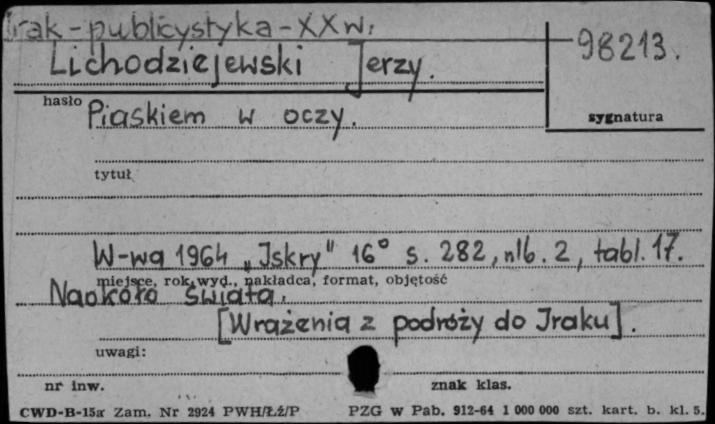 Irak - publicystyka - XX w.
98213.
Lichodziejewski Jerzy.
hasło
sygnatura
Piaskiem w oczy.
tytuł
W-wa 1964 „Iskry" 16° s. 282, nlb. 2, tabl. 17.
miejsce, rok wyd., nakładca, format, objętość
Naokoło świata.
[Wrażenia z podróży do Iraku].
uwagi:
nr inw. znak klas.
CWD-B-15a Zam. Nr 2924 PWH/Łź/P PZG w Pab. 912-64 1 000 000 szt. kart. b. kl. 5.